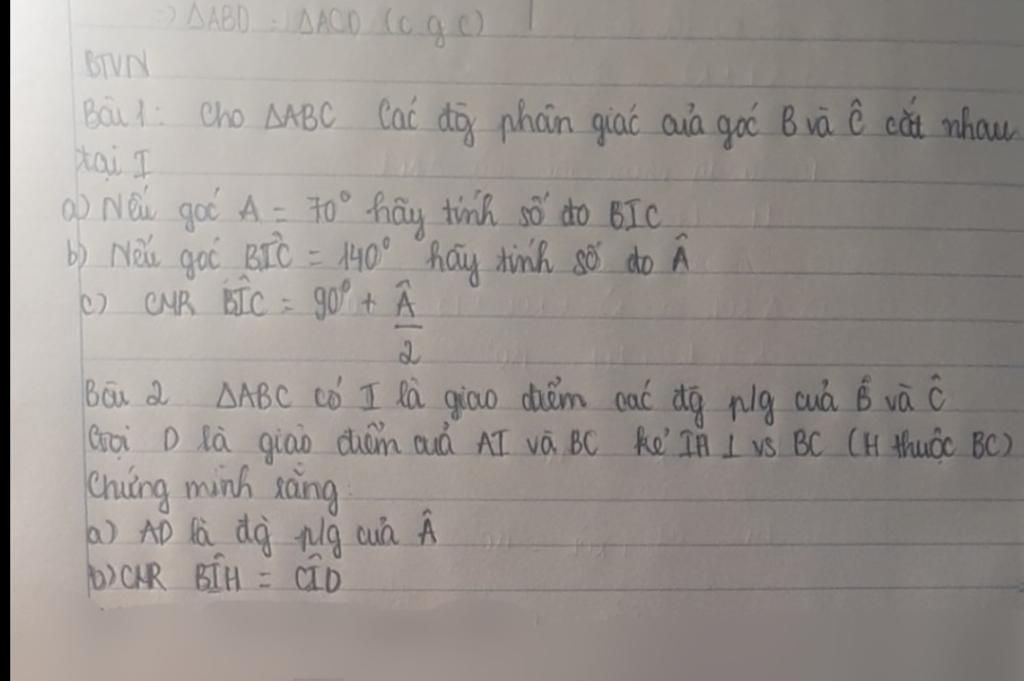 => ΔABD = ΔACD (c g c)
BTVN
Bài 1: Cho ΔABC Các đg phân giác của góc B và Ĉ cắt nhau
tại I
a) Nếu góc A = 70° hãy tính số đo BIC
b) Nếu góc BIC = 140° hãy tính số đo Â
c) CMR BÎC = 90° + Â/2
Bài 2 ΔABC có I là giao điểm các đg p/g của B̂ và Ĉ
Gọi D là giao điểm của AI và BC kẻ IH ⊥ vs BC (H thuộc BC)
Chứng minh rằng:
a) AD là đg p/g của Â
b) CMR BÎH = CÎD